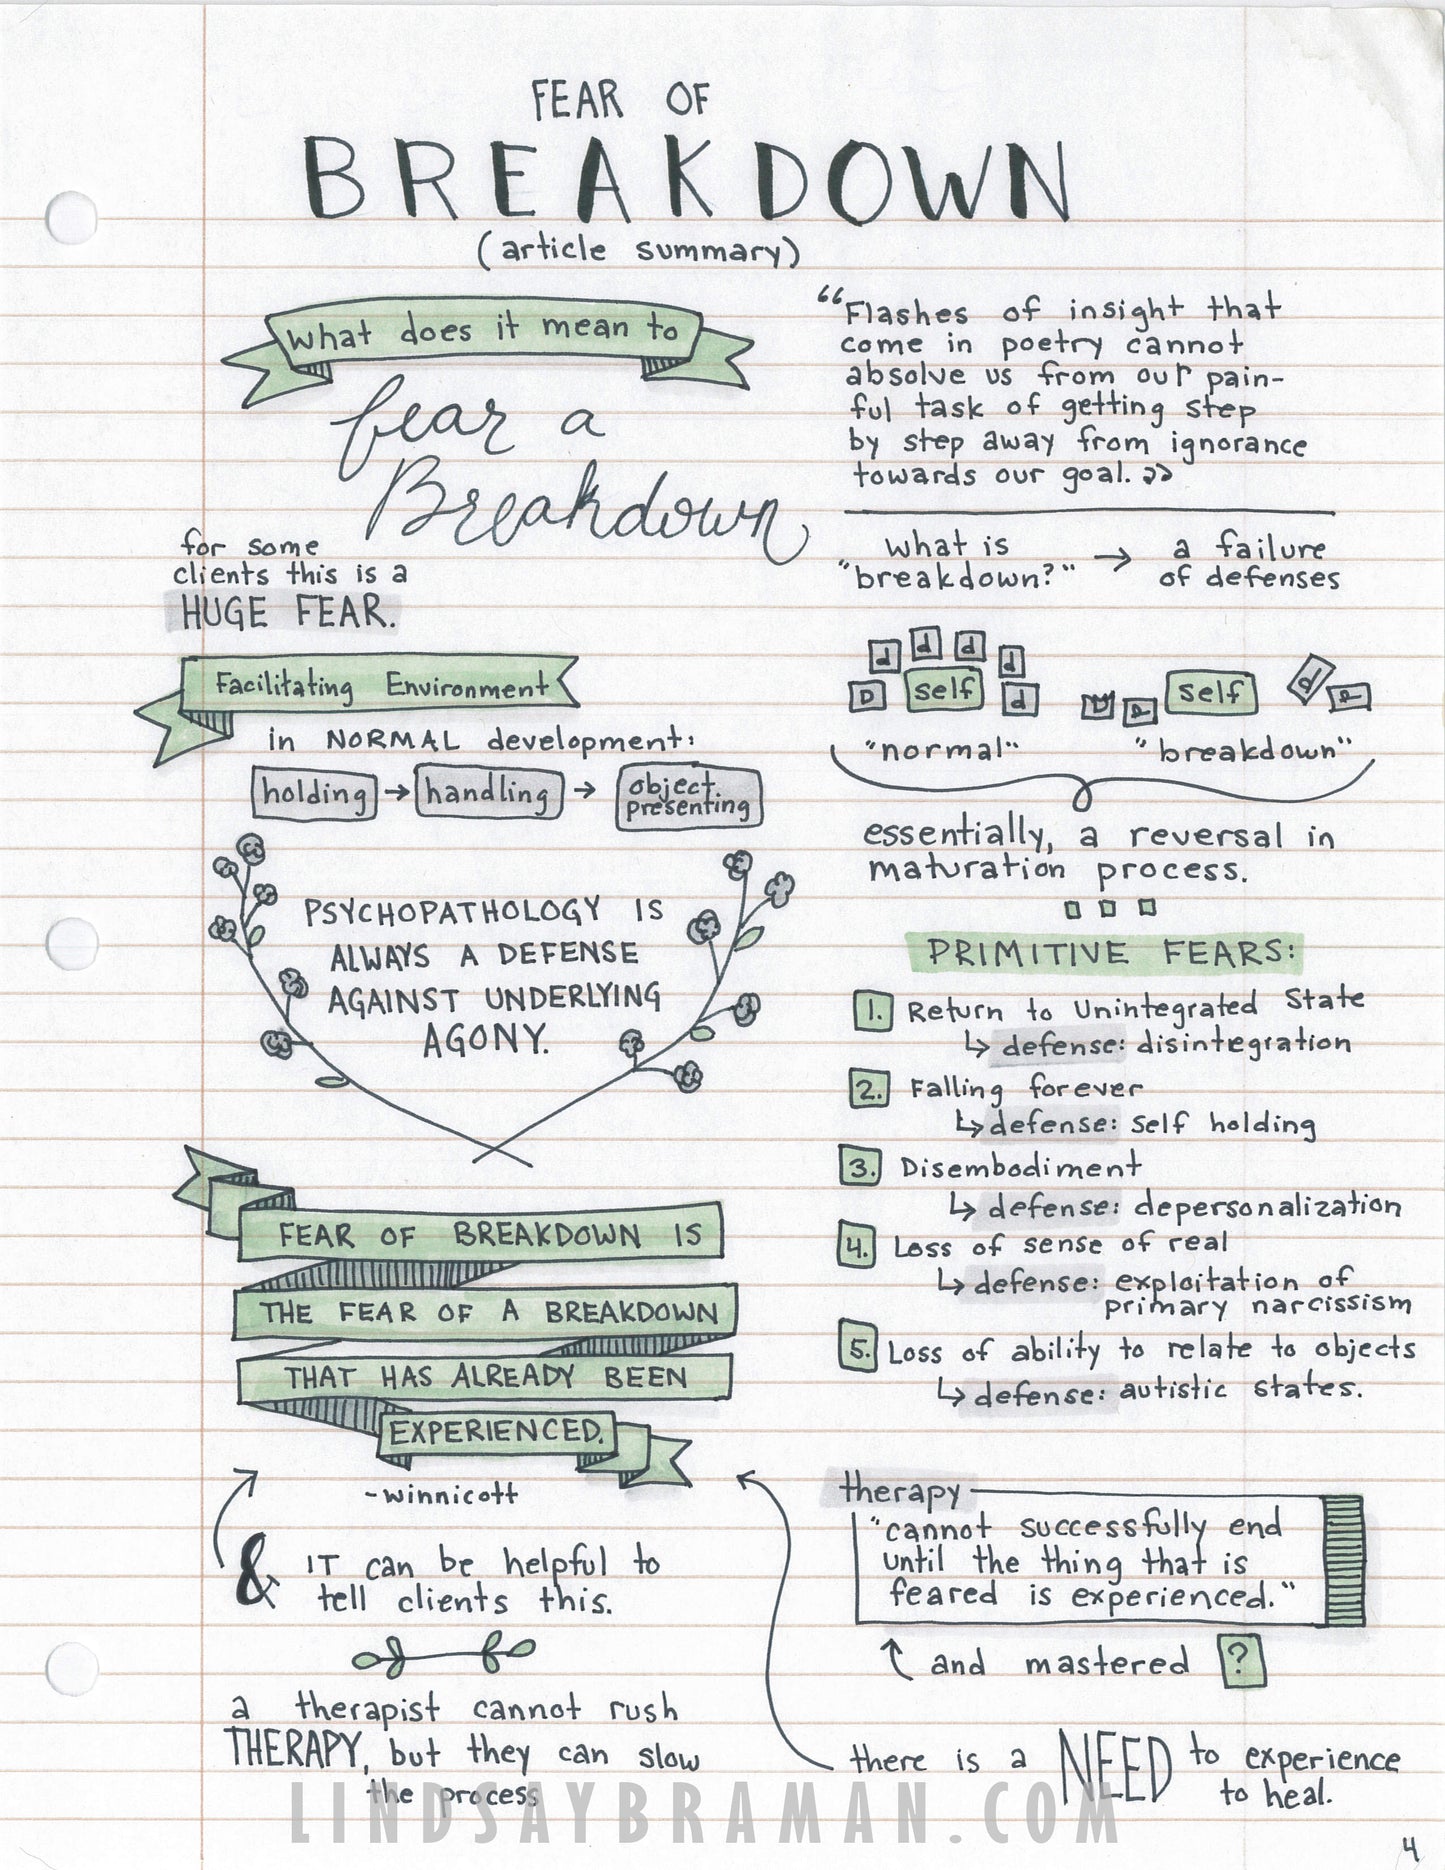 FEAR OF
BREAKDOWN
(article summary)
what does it mean to
fear a
Breakdown
for some
clients this is a
HUGE FEAR.
Facilitating Environment
in NORMAL development:
holding → handling → object
presenting
PSYCHOPATHOLOGY IS
ALWAYS A DEFENSE
AGAINST UNDERLYING
AGONY.
FEAR OF BREAKDOWN IS
THE FEAR OF A BREAKDOWN
THAT HAS ALREADY BEEN
EXPERIENCED.
-winnicott
& IT can be helpful to
tell clients this.
a therapist cannot rush
THERAPY, but they can slow
the process
"Flashes of insight that
come in poetry cannot
absolve us from our pain-
ful task of getting step
by step away from ignorance
towards our goal."
what is
"breakdown?" → a failure
of defenses
d d d d
D self d
self
d
"normal" "breakdown"
essentially, a reversal in
maturation process.
PRIMITIVE FEARS:
1. Return to Unintegrated State
↳ defense: disintegration
2. Falling forever
↳ defense: self holding
3. Disembodiment
↳ defense: depersonalization
4. Loss of sense of real
↳ defense: exploitation of
primary narcissism
5. Loss of ability to relate to objects
↳ defense: autistic states.
therapy
"cannot successfully end
until the thing that is
feared is experienced."
and mastered ?
there is a NEED to experience
to heal.
LINDSAYBRAMAN.COM
4